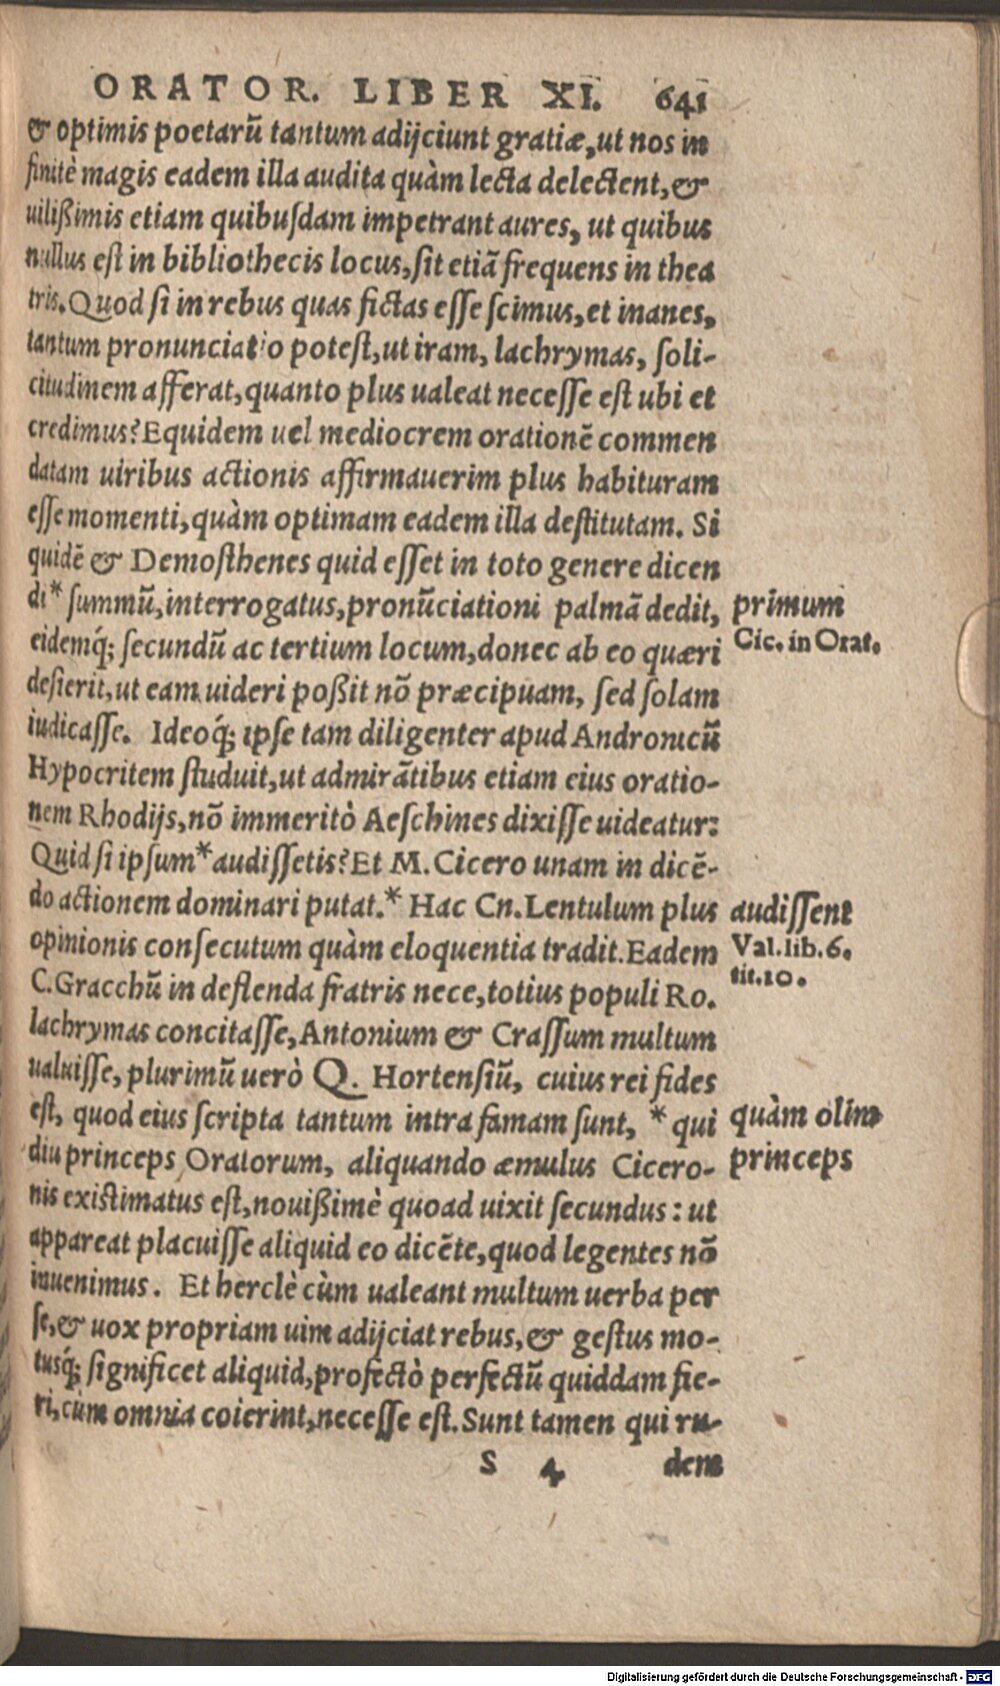 ORATOR. LIBER XI. 641
& optimis poetarũ tantum adijciunt gratiæ, ut nos in
finitè magis eadem illa audita quàm lecta delectent, &
uilißimis etiam quibuſdam impetrant aures, ut quibus
nullus eſt in bibliothecis locus, ſit etiã frequens in thea
tris. Quod ſi in rebus quas fictas eſſe ſcimus, et inanes,
tantum pronunciatio poteſt, ut iram, lachrymas, ſoli-
citudinem afferat, quanto plus ualeat neceſſe eſt ubi et
credimus? Equidem uel mediocrem orationẽ commen
datam uiribus actionis affirmauerim plus habituram
eſſe momenti, quàm optimam eadem illa deſtitutam. Si
quidẽ & Demoſthenes quid eſſet in toto genere dicen
di* ſummũ, interrogatus, pronũciationi palmã dedit,
primum
eidemq́; ſecundũ ac tertium locum, donec ab eo quæri
Cic. in Orat.
deſierit, ut eam uideri poßit nõ præcipuam, ſed ſolam
iudicaſſe. Ideoq́; ipſe tam diligenter apud Andronicũ
Hypocritem ſtuduit, ut admirãtibus etiam eius oratio-
nem Rhodijs, nõ immeritò Aeſchines dixiſſe uideatur:
Quid ſi ipſum* audiſſetis? Et M. Cicero unam in dicẽ-
do actionem dominari putat.* Hac Cn. Lentulum plus
audiſſent
opinionis conſecutum quàm eloquentia tradit. Eadem
Val. lib. 6.
tit. 10.
C. Gracchũ in deflenda fratris nece, totius populi Ro.
lachrymas concitaſſe, Antonium & Craſſum multum
ualuiſſe, plurimũ uerò Q. Hortenſiũ, cuius rei fides
eſt, quod eius ſcripta tantum intra famam ſunt, * qui
quàm olim
diu princeps Oratorum, aliquando æmulus Cicero-
princeps
nis exiſtimatus eſt, nouißimè quoad uixit ſecundus: ut
appareat placuiſſe aliquid eo dicẽte, quod legentes nõ
inuenimus. Et herclè cùm ualeant multum uerba per
ſe, & uox propriam uim adijciat rebus, & geſtus mo-
tusq́; ſignificet aliquid, profectò perfectũ quiddam fie-
ri, cùm omnia coierint, neceſſe eſt. Sunt tamen qui ru-
S 4 dem
Digitalisierung gefördert durch die Deutsche Forschungsgemeinschaft - DFG